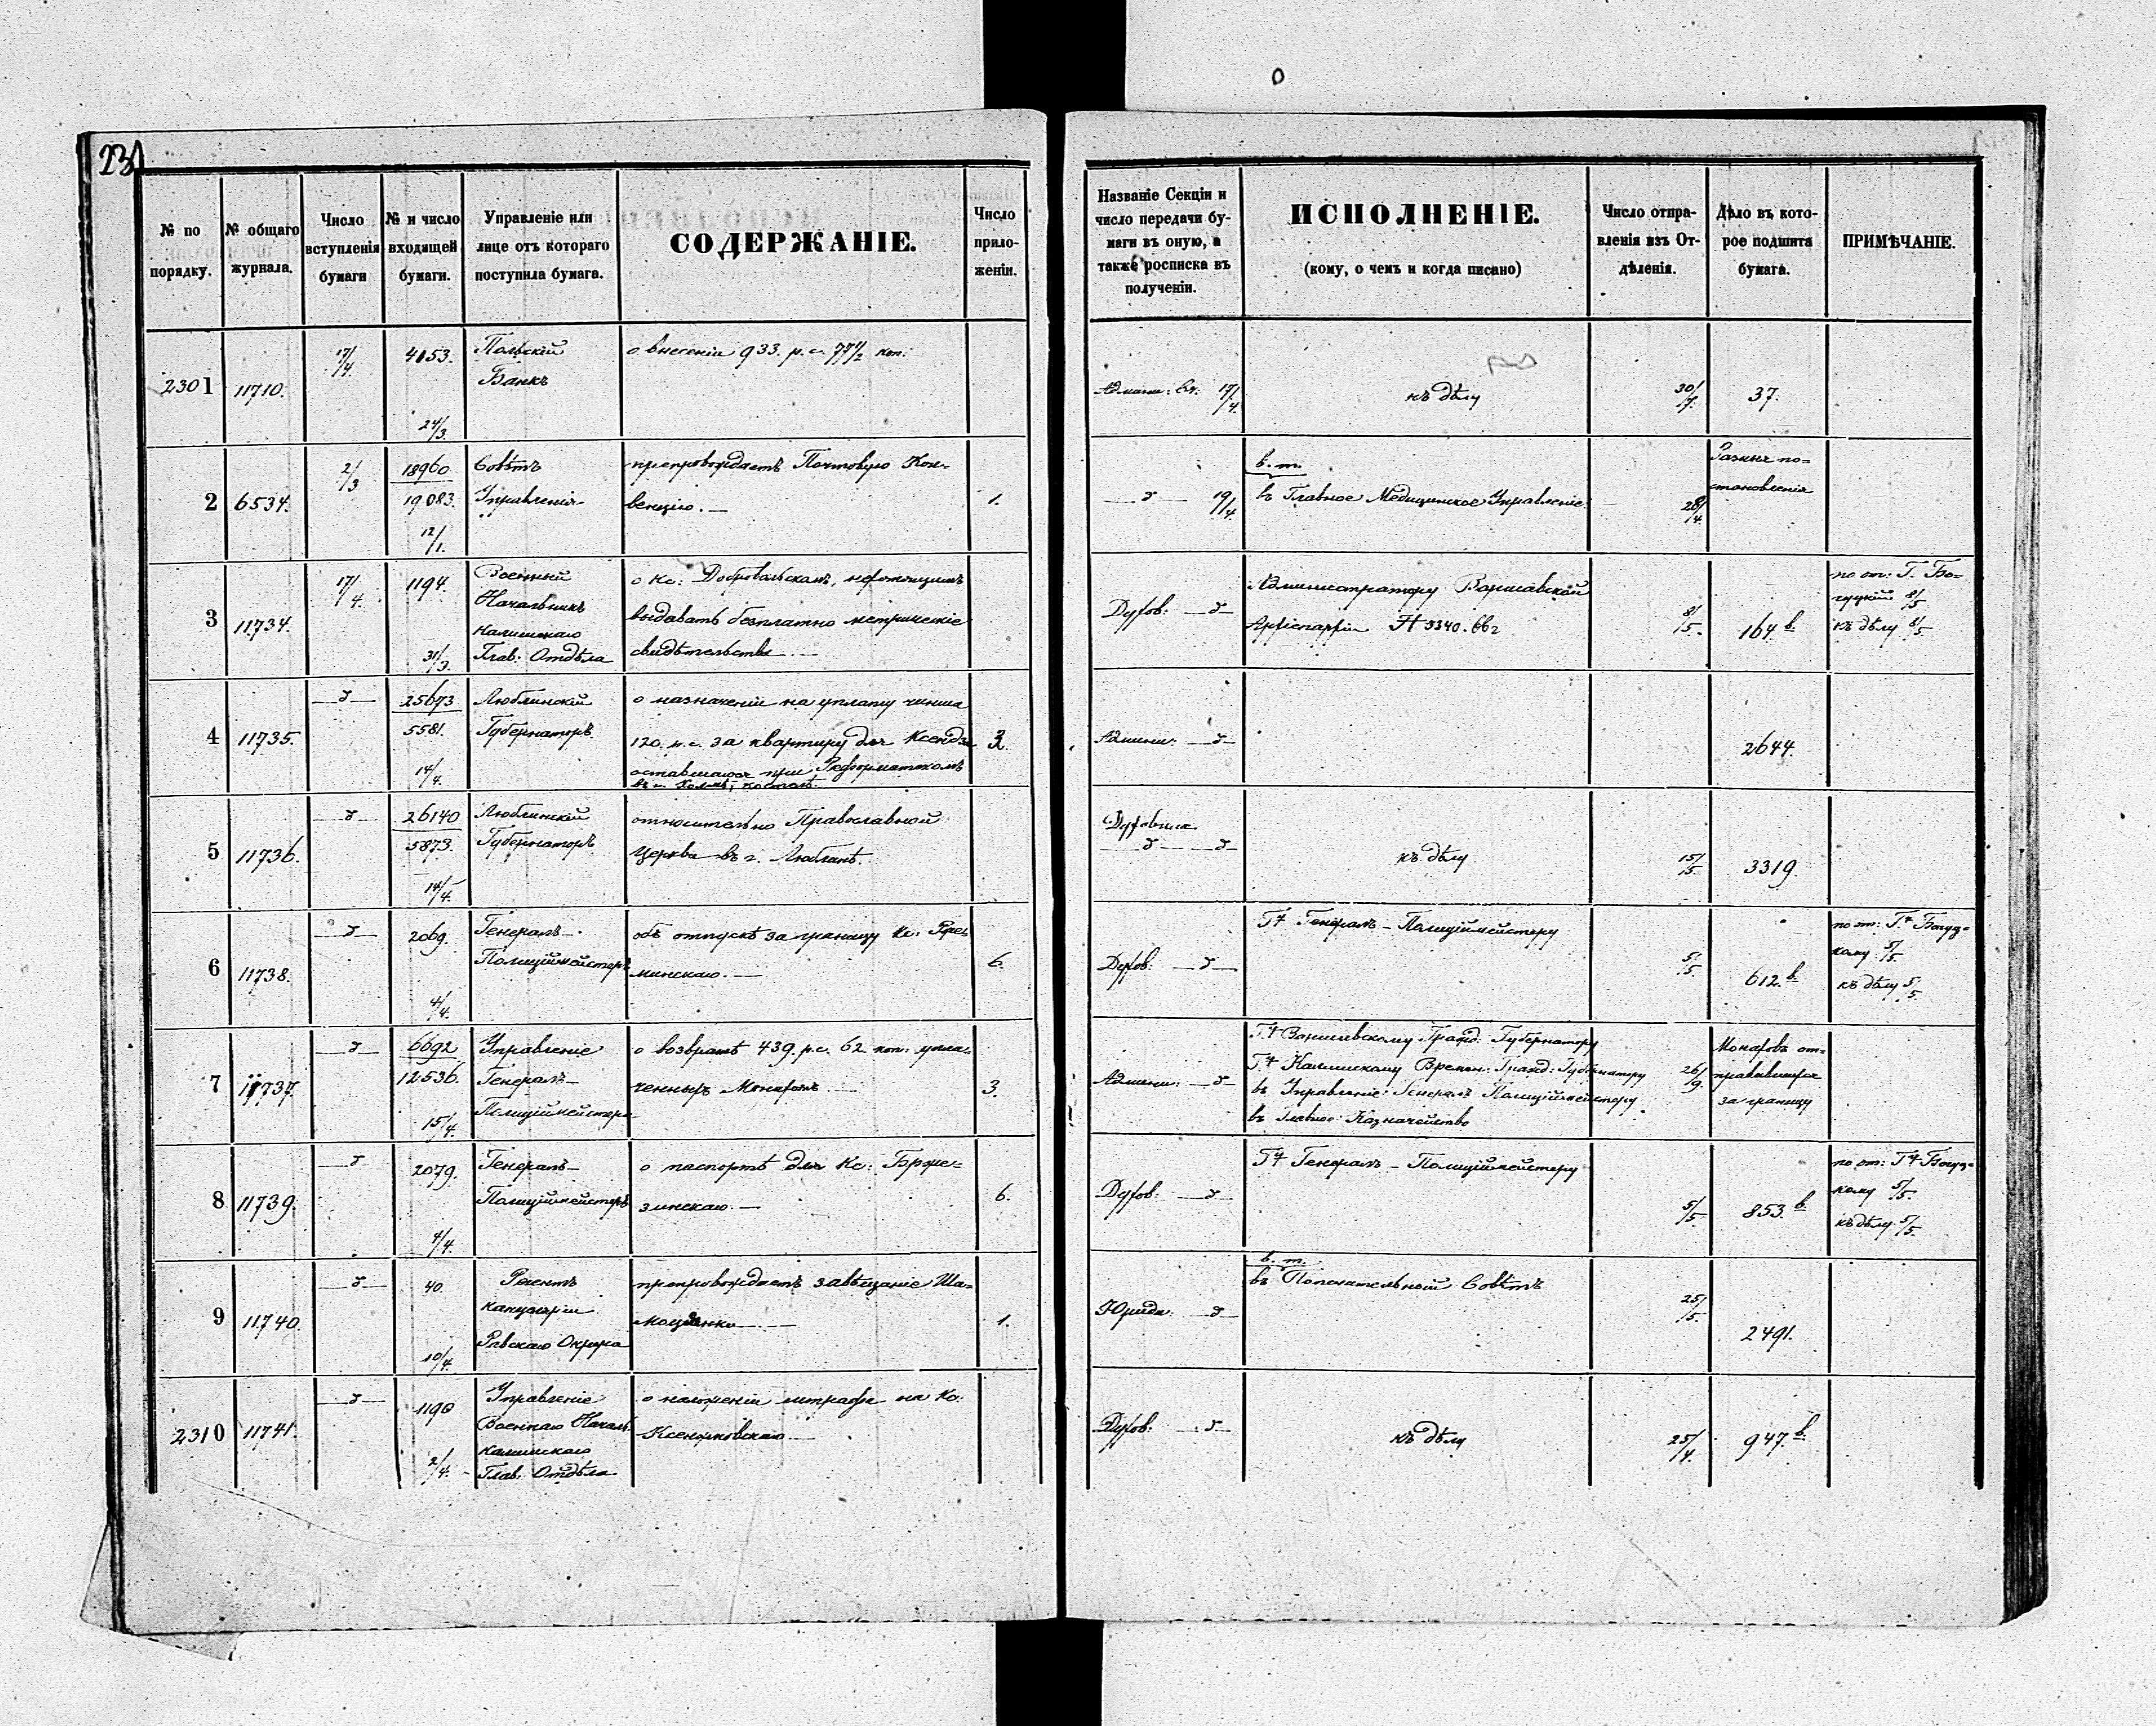 231
№ по порядку.
№ общаго журнала.
Число вступленія бумаги
№ и число входящей бумаги.
Управленіе или лице отъ котораго поступила бумага.
СОДЕРЖАНІЕ.
Число прило-женій.
Названіе Секціи и число передачи бу-маги въ оную, а также росписка въ полученіи.
ИСПОЛНЕНІЕ.
(кому, о чемъ и когда писано)
Число отпра-вленія изъ От-дѣленія.
Дѣло въ кото-рое подшита бумага.
ПРИМѢЧАНІЕ.
2301
11710.
17/4.
4153.
24/3.
Польскій
Банкъ
о внесеніи 933. р. с. 77 1/2 коп.
17/4.
къ дѣлу
30/4.
37.
2
6534.
2/3
18960
19083.
12/1.
Совѣтъ
Управленія
препровождаетъ Почтовую Кон-
венцію.
1.
19/4.
в. т.
въ Главное Медицинское Управленіе
28/4.
Разныя по-
становленія
3
11734.
17/4.
1194.
31/3.
Военный
Начальникъ
Калишскаго
Глав: Отдѣла
о Кс: Добровольскомъ, нехотящимъ
выдавать безплатно метрическіе
свидѣтельства
Духов:
Администратору Варшавской
Архіепархіи
8/5.
164.в.
по от: Г. Бо-
гуцкій 8/5
къ дѣлу 8/5.
4
11735.
25673
5581.
14/4.
Люблинскій
Губернаторъ.
о назначеніи на уплату чинша
120. р. с. за квартиру для Ксендза
оставшагося при Реформатскомъ
въ г. Холмѣ, костелѣ.
Админи:
2644.
5
11736.
26140
5873.
14/4.
Люблинскій
Губернаторъ.
относительно Православной
Церкви въ г. Люблинѣ.
къ дѣлу
15/5.
3319.
6
11738.
2069.
4/4.
Генералъ-
Полиціймейстеръ
объ отпускѣ за границу Кс:
6.
Духов:
Гну Генералъ-Полиціймейстеру
5/5.
612.в.
къ дѣлу 5/5.
7
11737.
6692
12536.
15/4.
Управленіе
Генералъ-
Полиціймейстера
о возвратѣ 439. р. с. 62 коп: упла-
ченныхъ Монахамъ
3.
Админи:
Гну Варшавскому Гражд: Губернатору
Гну Калишскому Времен: Гражд: Губернатору
въ Управленіе Генералъ Полиціймейстеру
въ Главное Казначейство
26/9.
Монаховъ от-
правившихся
за границу
8
11739.
2079.
4/4.
Генералъ-
Полиціймейстеръ
о паспортѣ для Кс: Брже-
зинскаго.
6.
Духов:
Гну Генералъ-Полиціймейстеру
5/5
853.в.
къ дѣлу 5/5.
9
11740.
40.
10/4.
Регентъ
канцеляріи
Равскаго Округа
препровождаетъ завѣщаніе
1.
Юриди:
в. т.
въ Попечительный Совѣтъ
25/5.
2491.
2310
11741.
1190
2/4.
Управленіе
Военнаго Началь:
Калишскаго
Глав. Отдѣла
о наложеніи штрафа на Кс:
Духов:
къ дѣлу
25/4.
947.в.